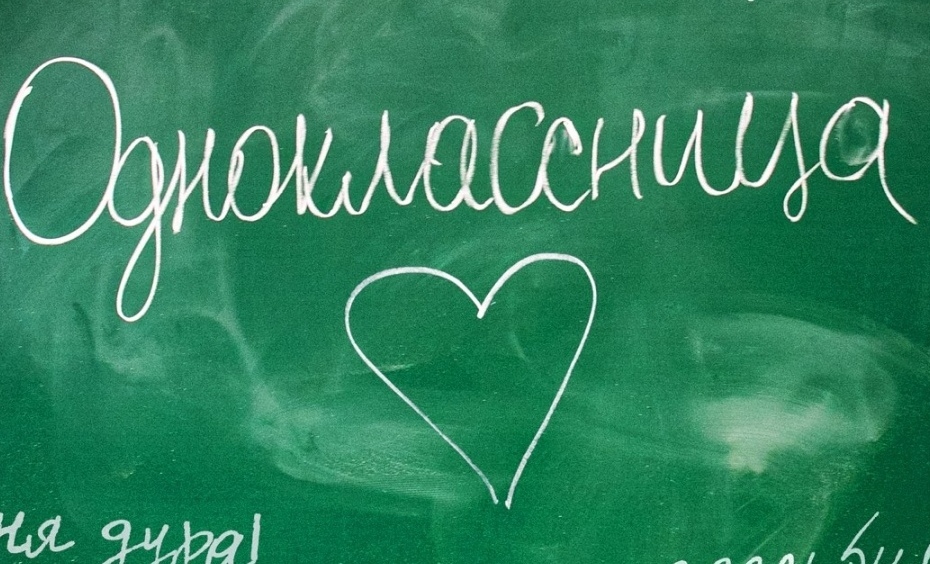 Одноклассница
ня дура!